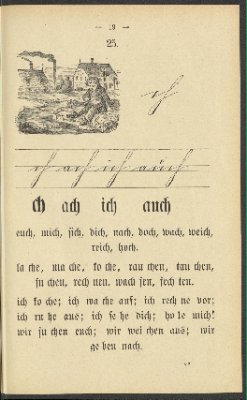 — 19 —
25.
ch
ch ach ich auch
ch ach ich auch
euch, mich, sich, dich, nach, doch, wach, weich,
reich, hoch.
la che, ma che, ko che, rau chen, tau chen,
su chen, rech nen, wach sen, fech ten.
ich ko che; ich wa che auf; ich rech ne vor;
ich ru he aus; ich se he dich; ho le mich!
wir su chen euch; wir wei chen aus; wir
ge ben nach.